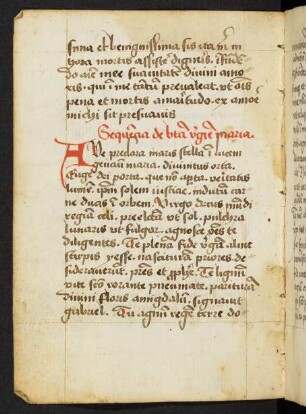 sima et benignissima sis ita m̄ in
hora mortis assiste digneris. infūde
aīe mee suauitatē diuini amo
ris. qui ī me tātū preualeat. vt oīs
pena et mortis amaritudo. ex amore
michi sit presuauis
Sequēcia de btā vgīe maria.
Aue preclara maris stella ī lucem
gencium maria. diuinitus orta.
Euge dei porta. que nō apta. veritatis
lumē. ipm̄ solem iusticie. indutū car
ne ducis ī orbem. Virgo decus mūdi
regina celi. preelcta vt sol. pulchra
lunaris vt fulgor. agnosce oēs te
diligentes. Te plenā fide virgā alme
stirpis yesse. nasciturā priores de
siderauerāt. pr̄es et pphe. Te lignū
vite sc̄o rorante pneumate. pariturā
diuini floris amigdalū. signauit
gabriel. Tu agnū regē terre do